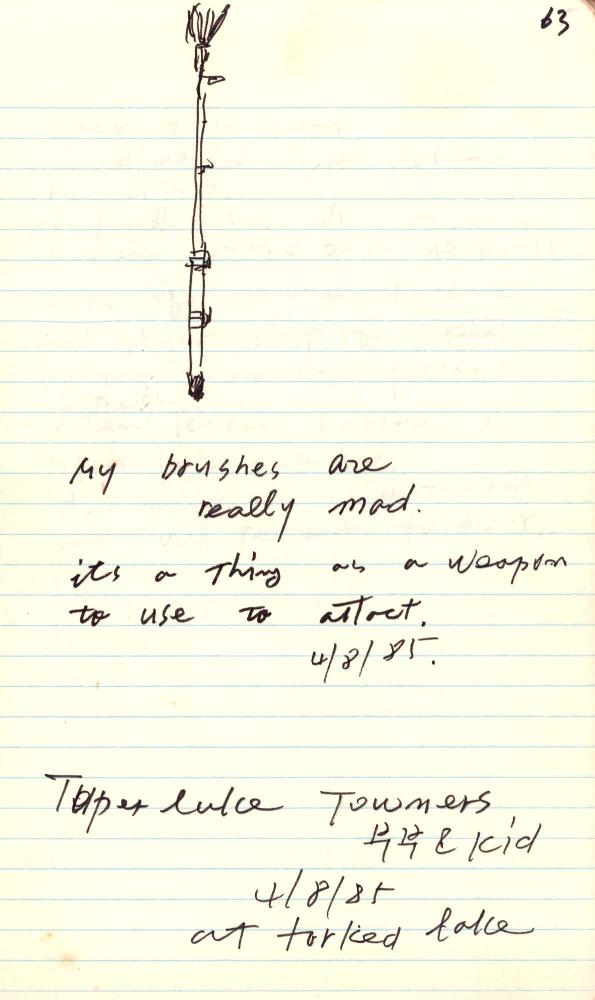 63
My brushes are
really mad.
its a Thing as a weapon
to use to attact.
4/8/85.
Tupper luke Towners
부부 & kid
4/8/85
at forked lake